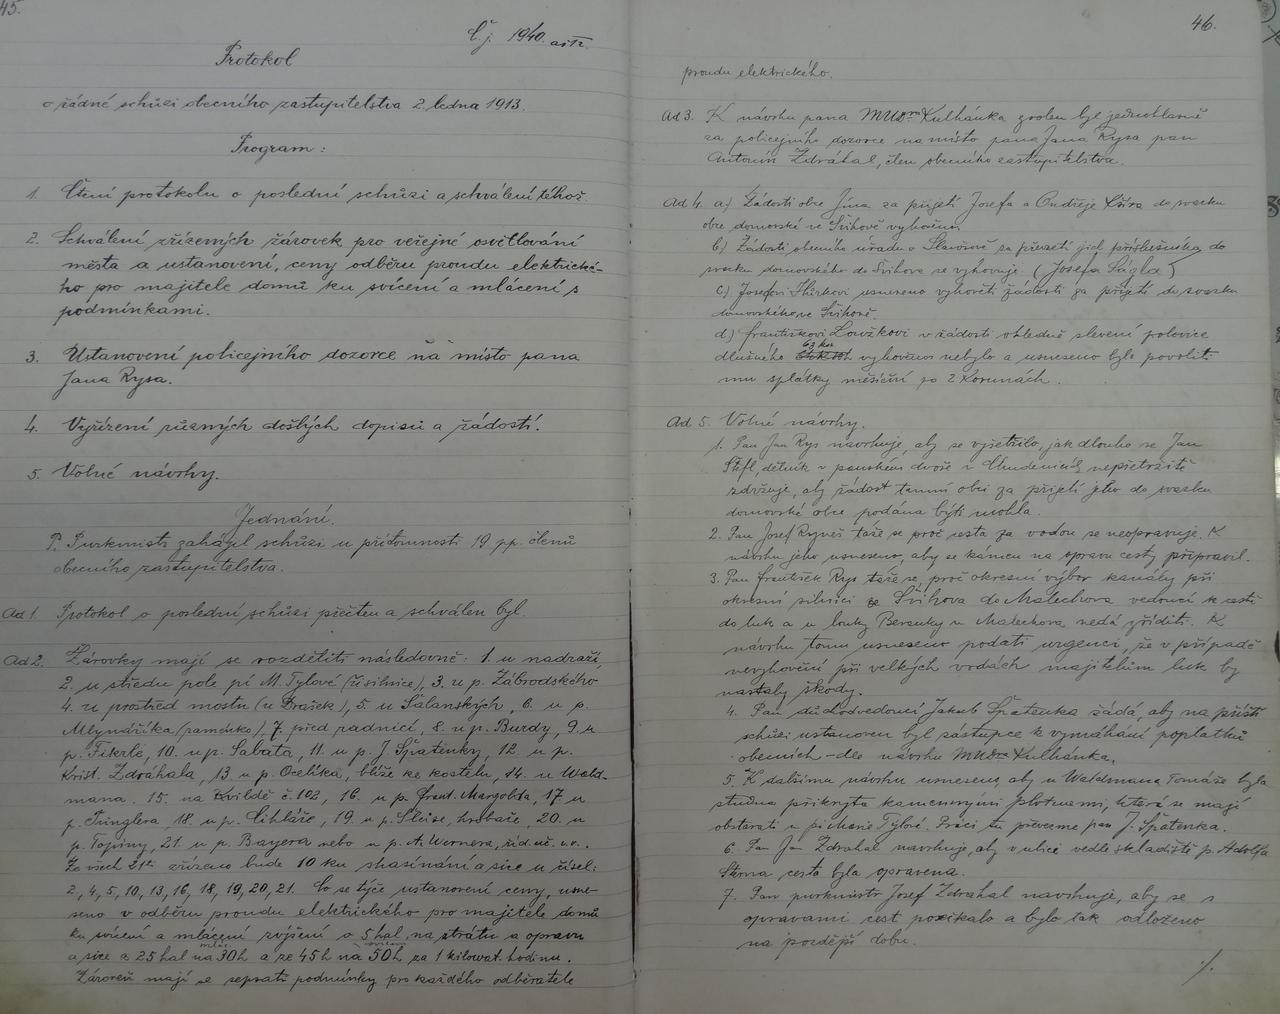 45.
Č.j. 1940. ai 12.
Protokol
o řádné schůzi obecního zastupitelstva 2. ledna 1913.
Program:
1. Čtení protokolu o poslední schůzi a schválení téhož.
2. Schválení zřízených žárovek pro veřejné osvětlování
města a ustanovení, ceny odběru proudu elektrické-
ho pro majitele domů ku svícení a mlácení s
podmínkami.
3. Ustanovení policejního dozorce na místo pana
Jana Rysa.
4. Vyřízení různých došlých dopisů a žádostí.
5. Volné návrhy.
Jednání.
P. Purkmistr zahájil schůzi u přítomnosti 19 pp. členů
obecního zastupitelstva.
Ad 1. Protokol o poslední schůzi přečten a schválen byl.
Ad 2. Žárovky mají se rozděliti následovně: 1. u nadraží,
2. u středu pole pí M. Tylové (u silnice), 3. u p. Zábrodského
4. u prostřed mostu (u Brašek), 5. u Šalanských, 6. u p.
Mlynáříka (raménko), 7. před radnicí, 8. u p. Burdy, 9. u
p. Fikrle, 10. u p. Sabata, 11. u p. J. Špatenky, 12. u p.
Krist. Zdráhala, 13. u p. Ocelíka, blíže ke kostelu, 14. u Wald-
mana. 15. na Kvildě č. 102, 16. u p. frant. Margolda, 17. u
p. Pünglera, 18. u p. Cihláře, 19. u p. hrobaře, 20. u
p. Topiny, 21. u p. Bayera nebo u p. A. Wernera, říd. uč. v.v.
Ze všech 21ti zřízeno bude 10 ku shasínání a sice u čísel:
2, 4, 5, 10, 13, 16, 18, 19, 20, 21. Co se týče ustanovení ceny, usne-
seno v odběru proudu elektrického pro majitele domů
ku svícení a mlácení zvýšení o 5 hal. na ztrátu a opravu
a sice z 25 hal na mlác. 30 h a ze 45 h na svícení 50 h za 1 kilowat. hodinu.
Zároveň mají se sepsati podmínky pro každého odběratele
46.
proudu elektrického.
Ad 3. K návrhu pana MUDra Kulhánka zvolen byl jednohlasně
za policejního dozorce na místo pana Jana Rysa pan
Antonín Zdráhal, člen obecního zastupitelstva.
Ad 4. a) Žádosti obce Jína za přijetí Josefa a Ondřeje do svazku
obce domovské ve Švihově vyhověno.
b) Žádosti obecního úřadu v Slavošně za převzetí jich příslušníka do
svazku domovského do Švihova se vyhovuje. (Josefa Ságla)
c) Josefovi usneseno vyhověti žádosti za přijetí do svazku
domovského ve Švihově.
d) františkovi Loužkovi v žádosti ohledně slevení polovice
dlužného vyhověno nebylo a usneseno bylo povoliti
mu splátky měsíční po 2 Korunách.
Ad 5. Volné návrhy.
1. Pan Jan Rys navrhuje, aby se vyšetřilo, jak dlouho se Jan
Štifl, dělník v panském dvoře v Chudenicích nepřetržitě
zdržuje, aby žádost tamní obci za přijetí jeho do svazku
domovské obce podána býti mohla.
2. Pan Josef Ryneš táže se proč cesta za vodou se neopravuje. K
návrhu jeho usneseno, aby se kámen na opravu cesty připravil.
3. Pan františek Rys táže se, proč okresní výbor kanály při
okresní silnici ze Švihova do Malechova vedoucí k cestě
do luk a u louky Beranky u Malechova nedá zříditi. K
návrhu tomu usneseno podati urgenci, že v případě
nevyhovění při velkých vodách majitelům luk by
nastaly škody.
4. Pan důchodvedoucí Jakub Špatenka žádá, aby na příští
schůzi ustanoven byl zástupce k vymáhání poplatků
obecních – dle návrhu MUDra Kulhánka.
5. K dalšímu návrhu usneseno, aby u Waldmana Tomáše byla
studna přikryta kamennými plotnami, která se mají
obstarati u pí Marie Tylové. Práci tu převezme pan J. Špatenka.
6. Pan Jan Zdrahal navrhuje, aby v ulici vedle skladiště p. Adolfa
Šterna cesta byla opravena.
7. Pan purkmistr Josef Zdrahal navrhuje, aby se s
opravami cest počkalo a bylo tak odloženo
na pozdější dobu.
./.